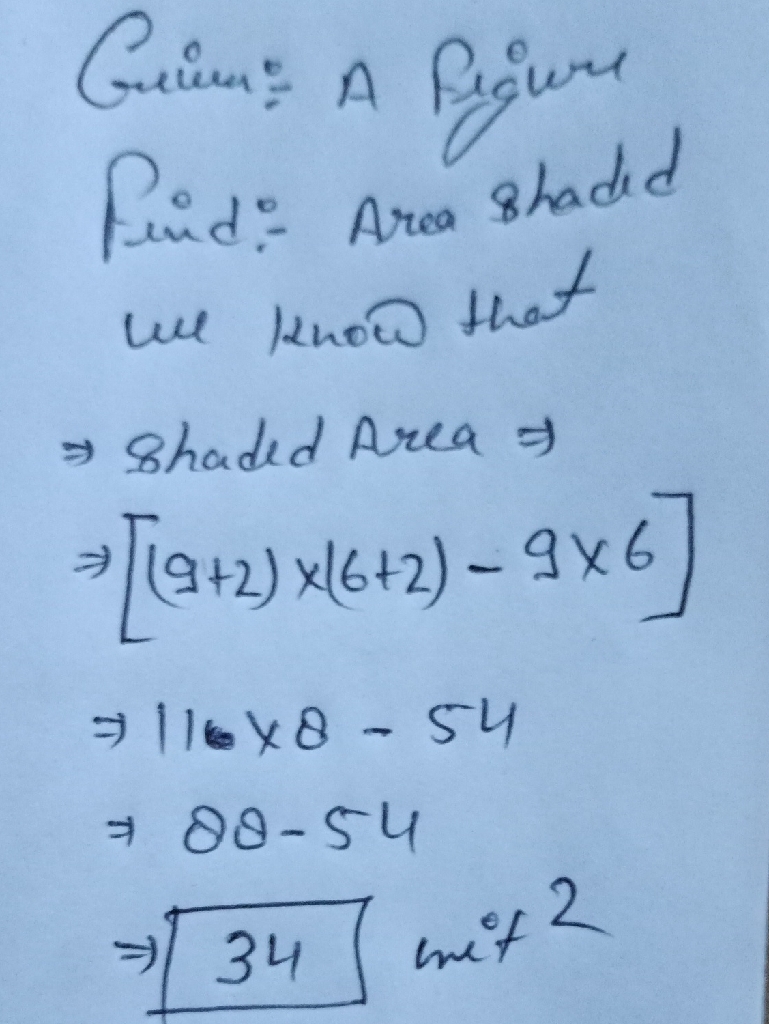 Given:- A figure
Find:- Area shaded
we know that
⇒ Shaded Area ⇒
⇒ [(9+2) x(6+2) - 9x6]
⇒ 11 x 8 - 54
⇒ 88-54
⇒ 34 unit 2